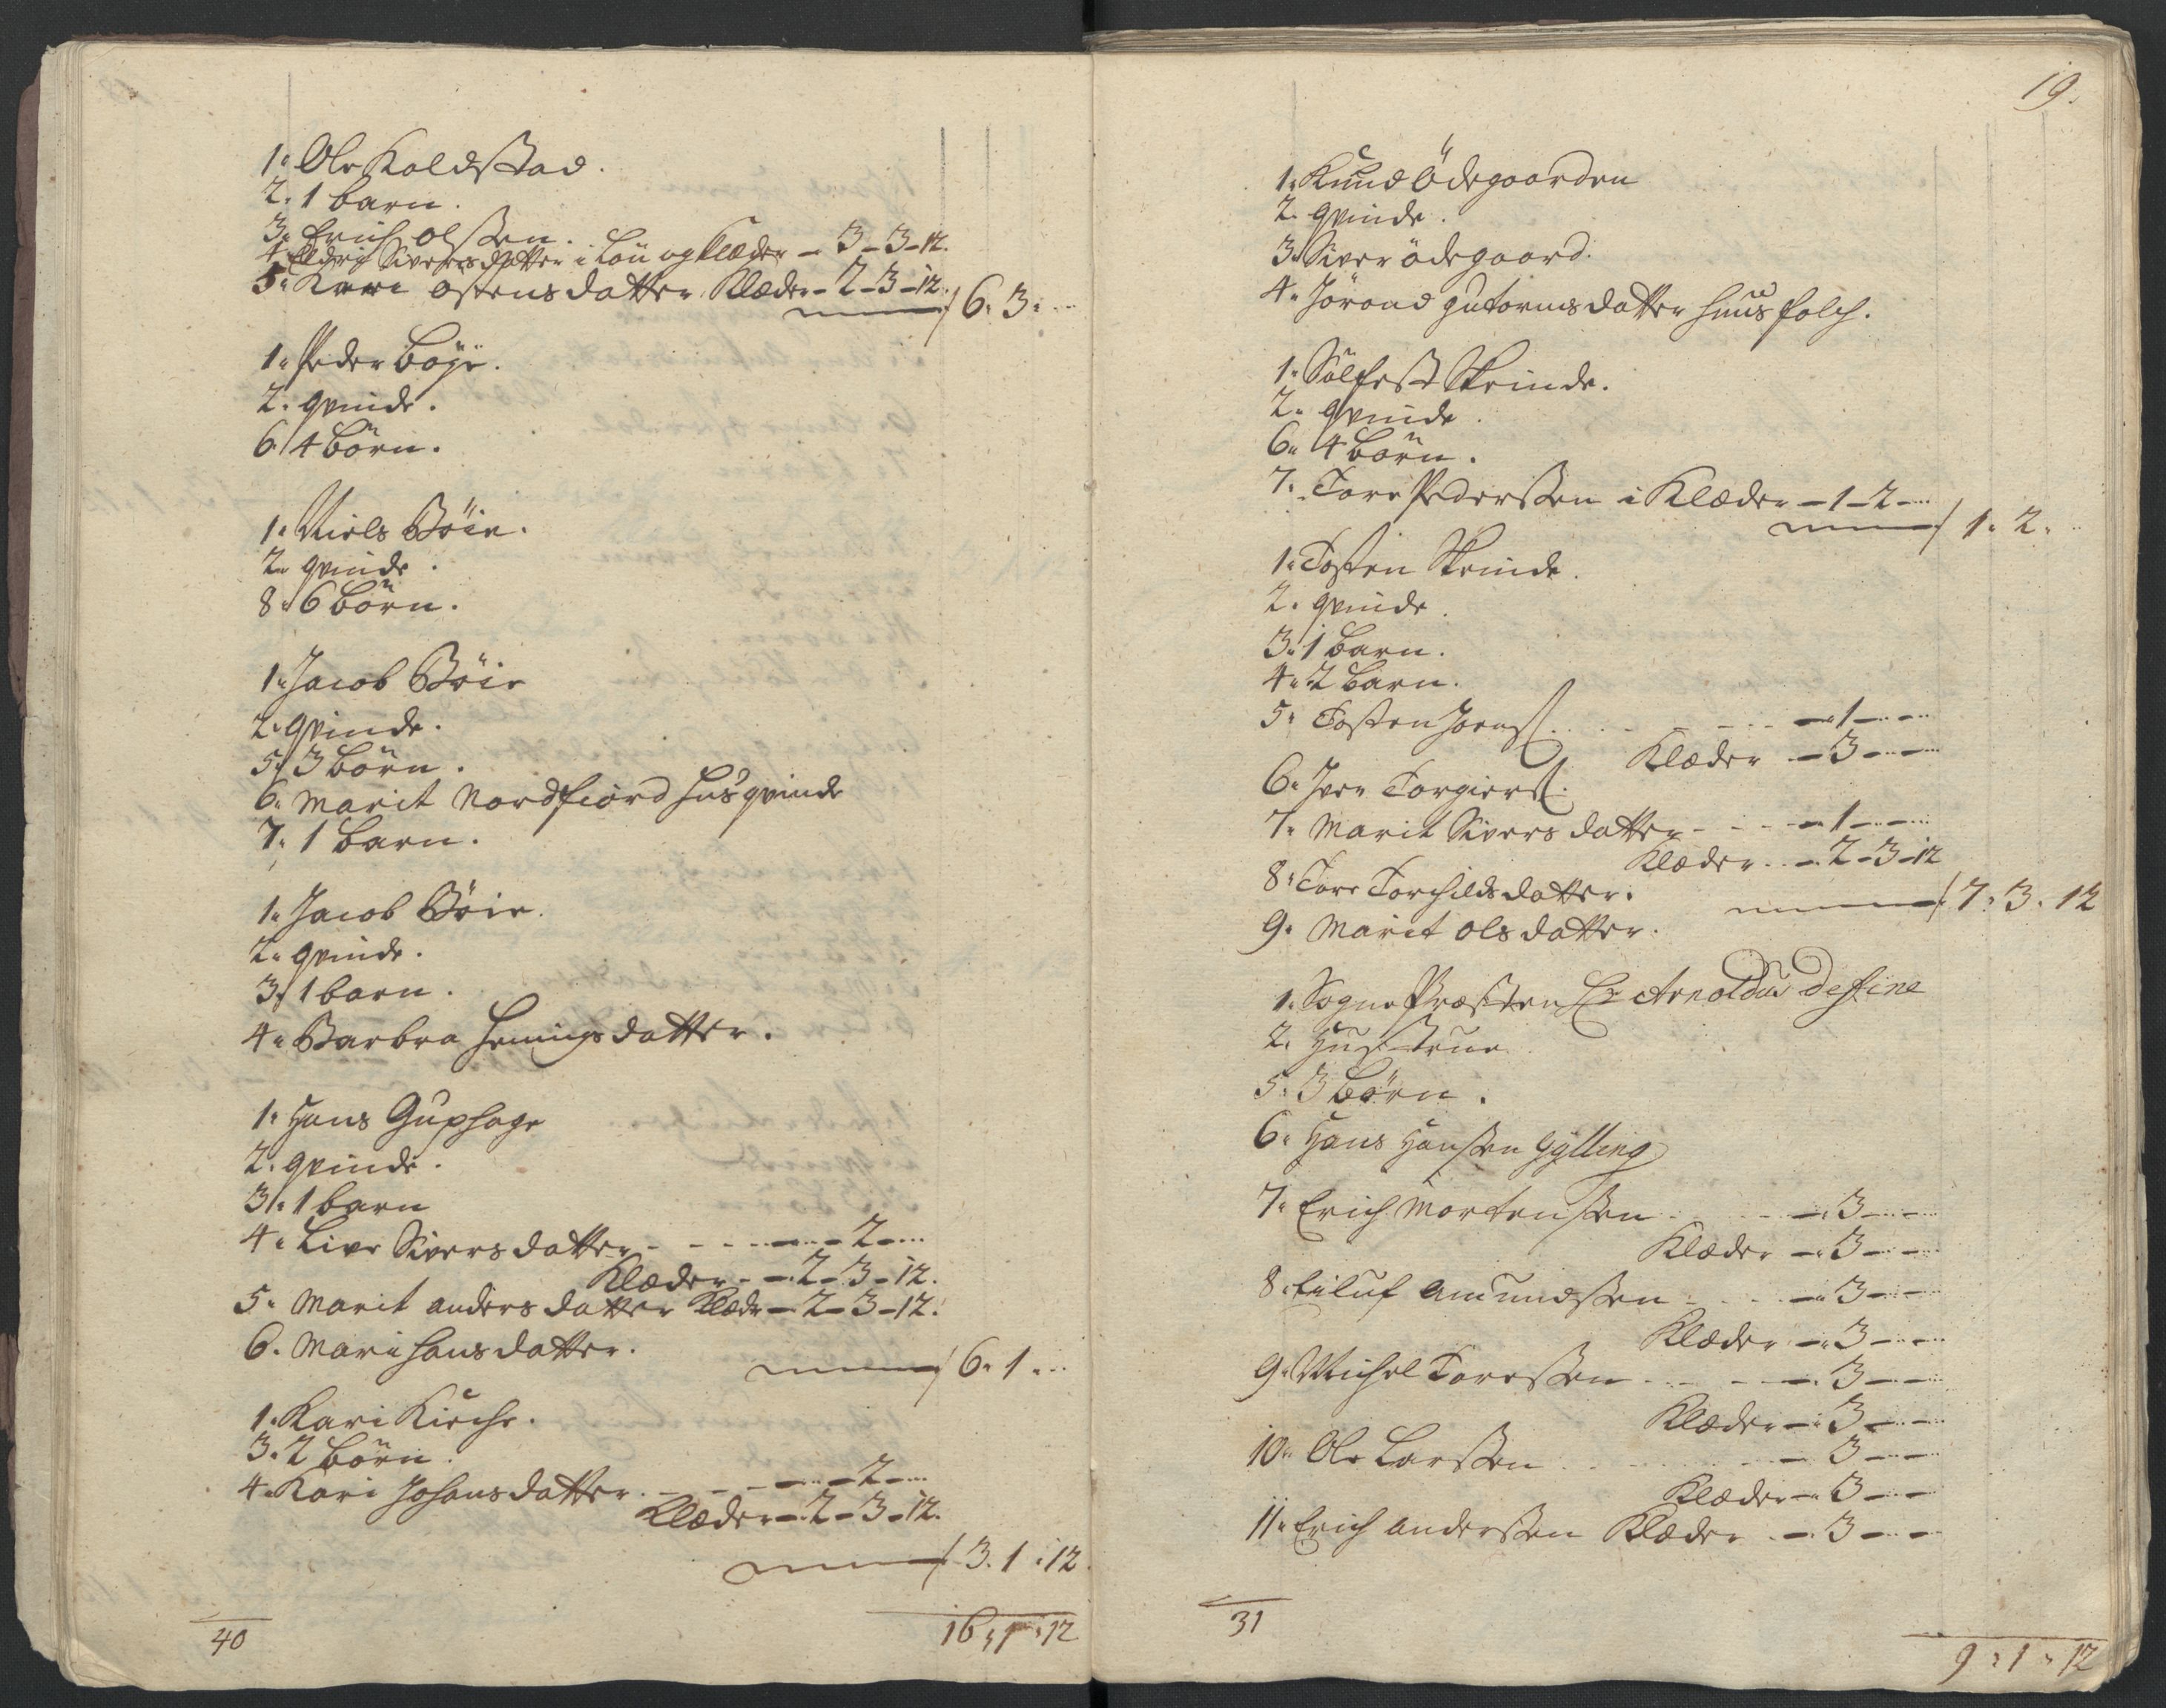 1. Ole Koldstad.
2. 1 barn.
3. Erich Olssen.
4. Eldri Sivers datter i Lön og Klæder - 3 - 3 - 12.
5. Kari Ostens datter Klæder - 2 - 3 - 12.
6. 3. -
1. Peder Böye.
2. qvinde.
6. 4 börn.
1. Niels Böie.
2. qvinde.
8. 6 börn.
1. Jacob Böie
2. qvinde.
5. 3 börn.
6. Marit Nordfiord husqvinde
7. 1 barn.
1. Jacob Böie.
2. qvinde.
3. 1 barn.
4. Barbra Hemings datter.
1. Hans Guphage
2. qvinde.
3. 1 barn
4. Live Sivers datter - - - 2 -
Klæder - 2 - 3 - 12.
5. Marit Anders datter Klæder - 2 - 3 - 12.
6. Mari Hans datter.
6. 1. -
1. Kari Kirche.
3. 2 börn.
4. Kari Johans datter - - - 2 -
Klæder - 2 - 3 - 12.
3. 1. 12
40
16. 1. 12
19.
1. Knud Ödegaarden
2. qvinde.
3. Siver Ödegaard.
4. Jörand Gutorms datter huus folch.
1. Sölfest Skrinde.
2. qvinde.
6. 4 börn.
7. Tore Pederssen i Klæder - 1 - 2 -
1. 2.
1. Tosten Skrinde.
2. qvinde.
3. 1 barn.
4. 2 barn.
5. Tosten Joens. - - - 1 - -
Klæder - 3 - -
6. Iver Torgiers.
7. Marit Sivers datter - - - 1 - -
Klæder - 2 - 3 - 12
8. Tore Torchilds datter.
7. 3. 12
9. Marit Ols datter.
1. Sogne Præsten Hr Arnoldus de fine
2. Hustrue
5. 3 börn.
6. Hans Hanssen Gylling
7. Erich Mortenssen - - 3 - -
Klæder - 3 - -
8. Eiluf Amundssen - - 3 - -
Klæder - 3 - -
9. Michel Toressen - - 3 - -
Klæder - 3 - -
10. Ole Larssen - - 3 - -
Klæder - 3 - -
11. Erich Anderssen Klæder - 3 - -
31
9. 1. 12